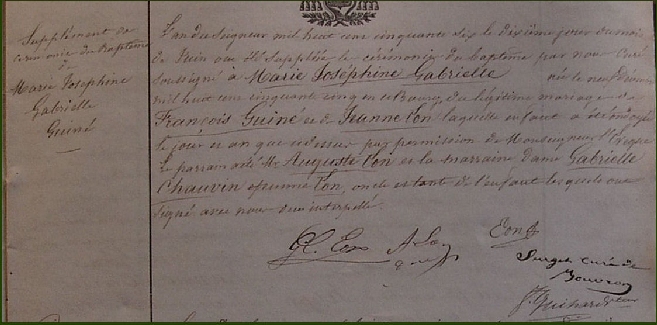 Supplément de
cérémonie du Baptême
de
Marie Josephine
Gabrielle
Guiné
L'an du Seigneur mil huit cent cinquante six le dixième jour du mois
de Juin ont été suppléées les cérémonies du baptême par nous Curé
soussigné à Marie Josephine Gabrielle née le neuf
mil huit cent cinquante cinq en ce Bourg du légitime mariage de
François Guiné et de Jeanne Eon laquelle enfant a été ondoyée
le jour et an que dessus par permission de Monseigneur l'évêque
Le parrain a été Mr Auguste Eon et la marraine dame Gabrielle
Chauvin épouse Eon, oncle et tante de l'enfant lesquels ont
signé avec nous
G. C. Eon A Eon
Eon
curé de
Bouvron